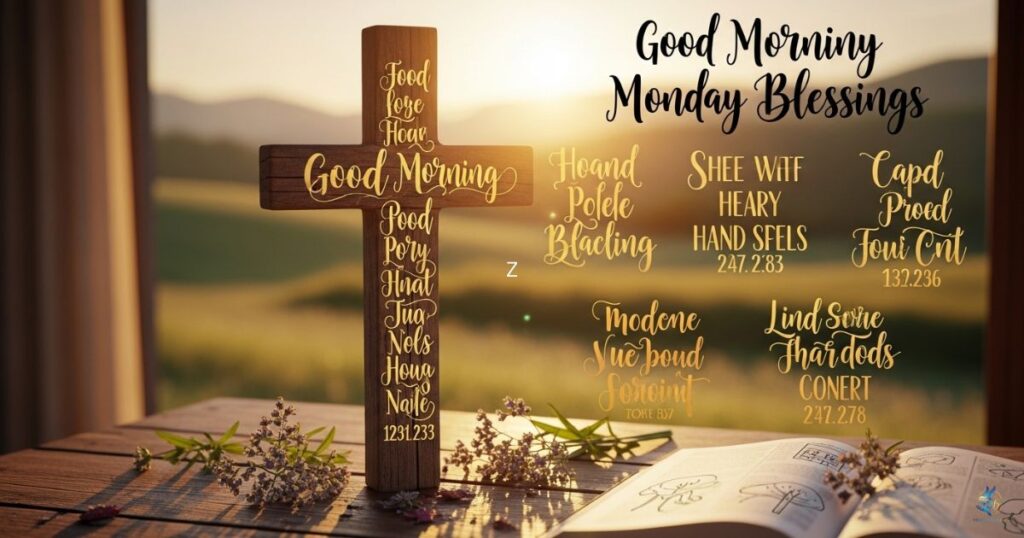 Good Morniny
Monday Blessings
Food
Foze
Hoar
Good Morning
Pood
Pory
Hnat
Tua
Nols
Houg
Naife
1231.233
Hoand
Polele
Blacling
SHEE WITF
HEARY
HAND SFELS
247.2.83
Capd
Proed
Foui Cnt
132.236
Z
Modene
Vue poud
Foroint
Lind Sorre
Fhardods
CONERT
247.278